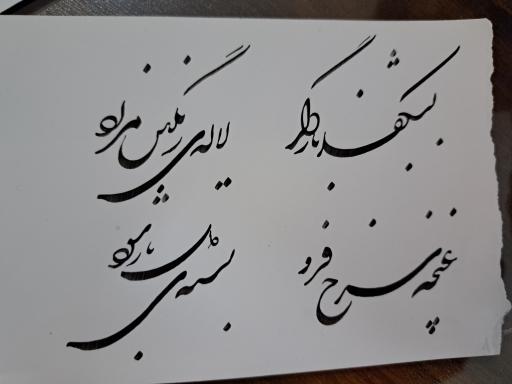 بشکفد بار دگر
لاله‌ی رنگین مراد
غنچه سرخ فرو
بسته‌ی دل باز شود